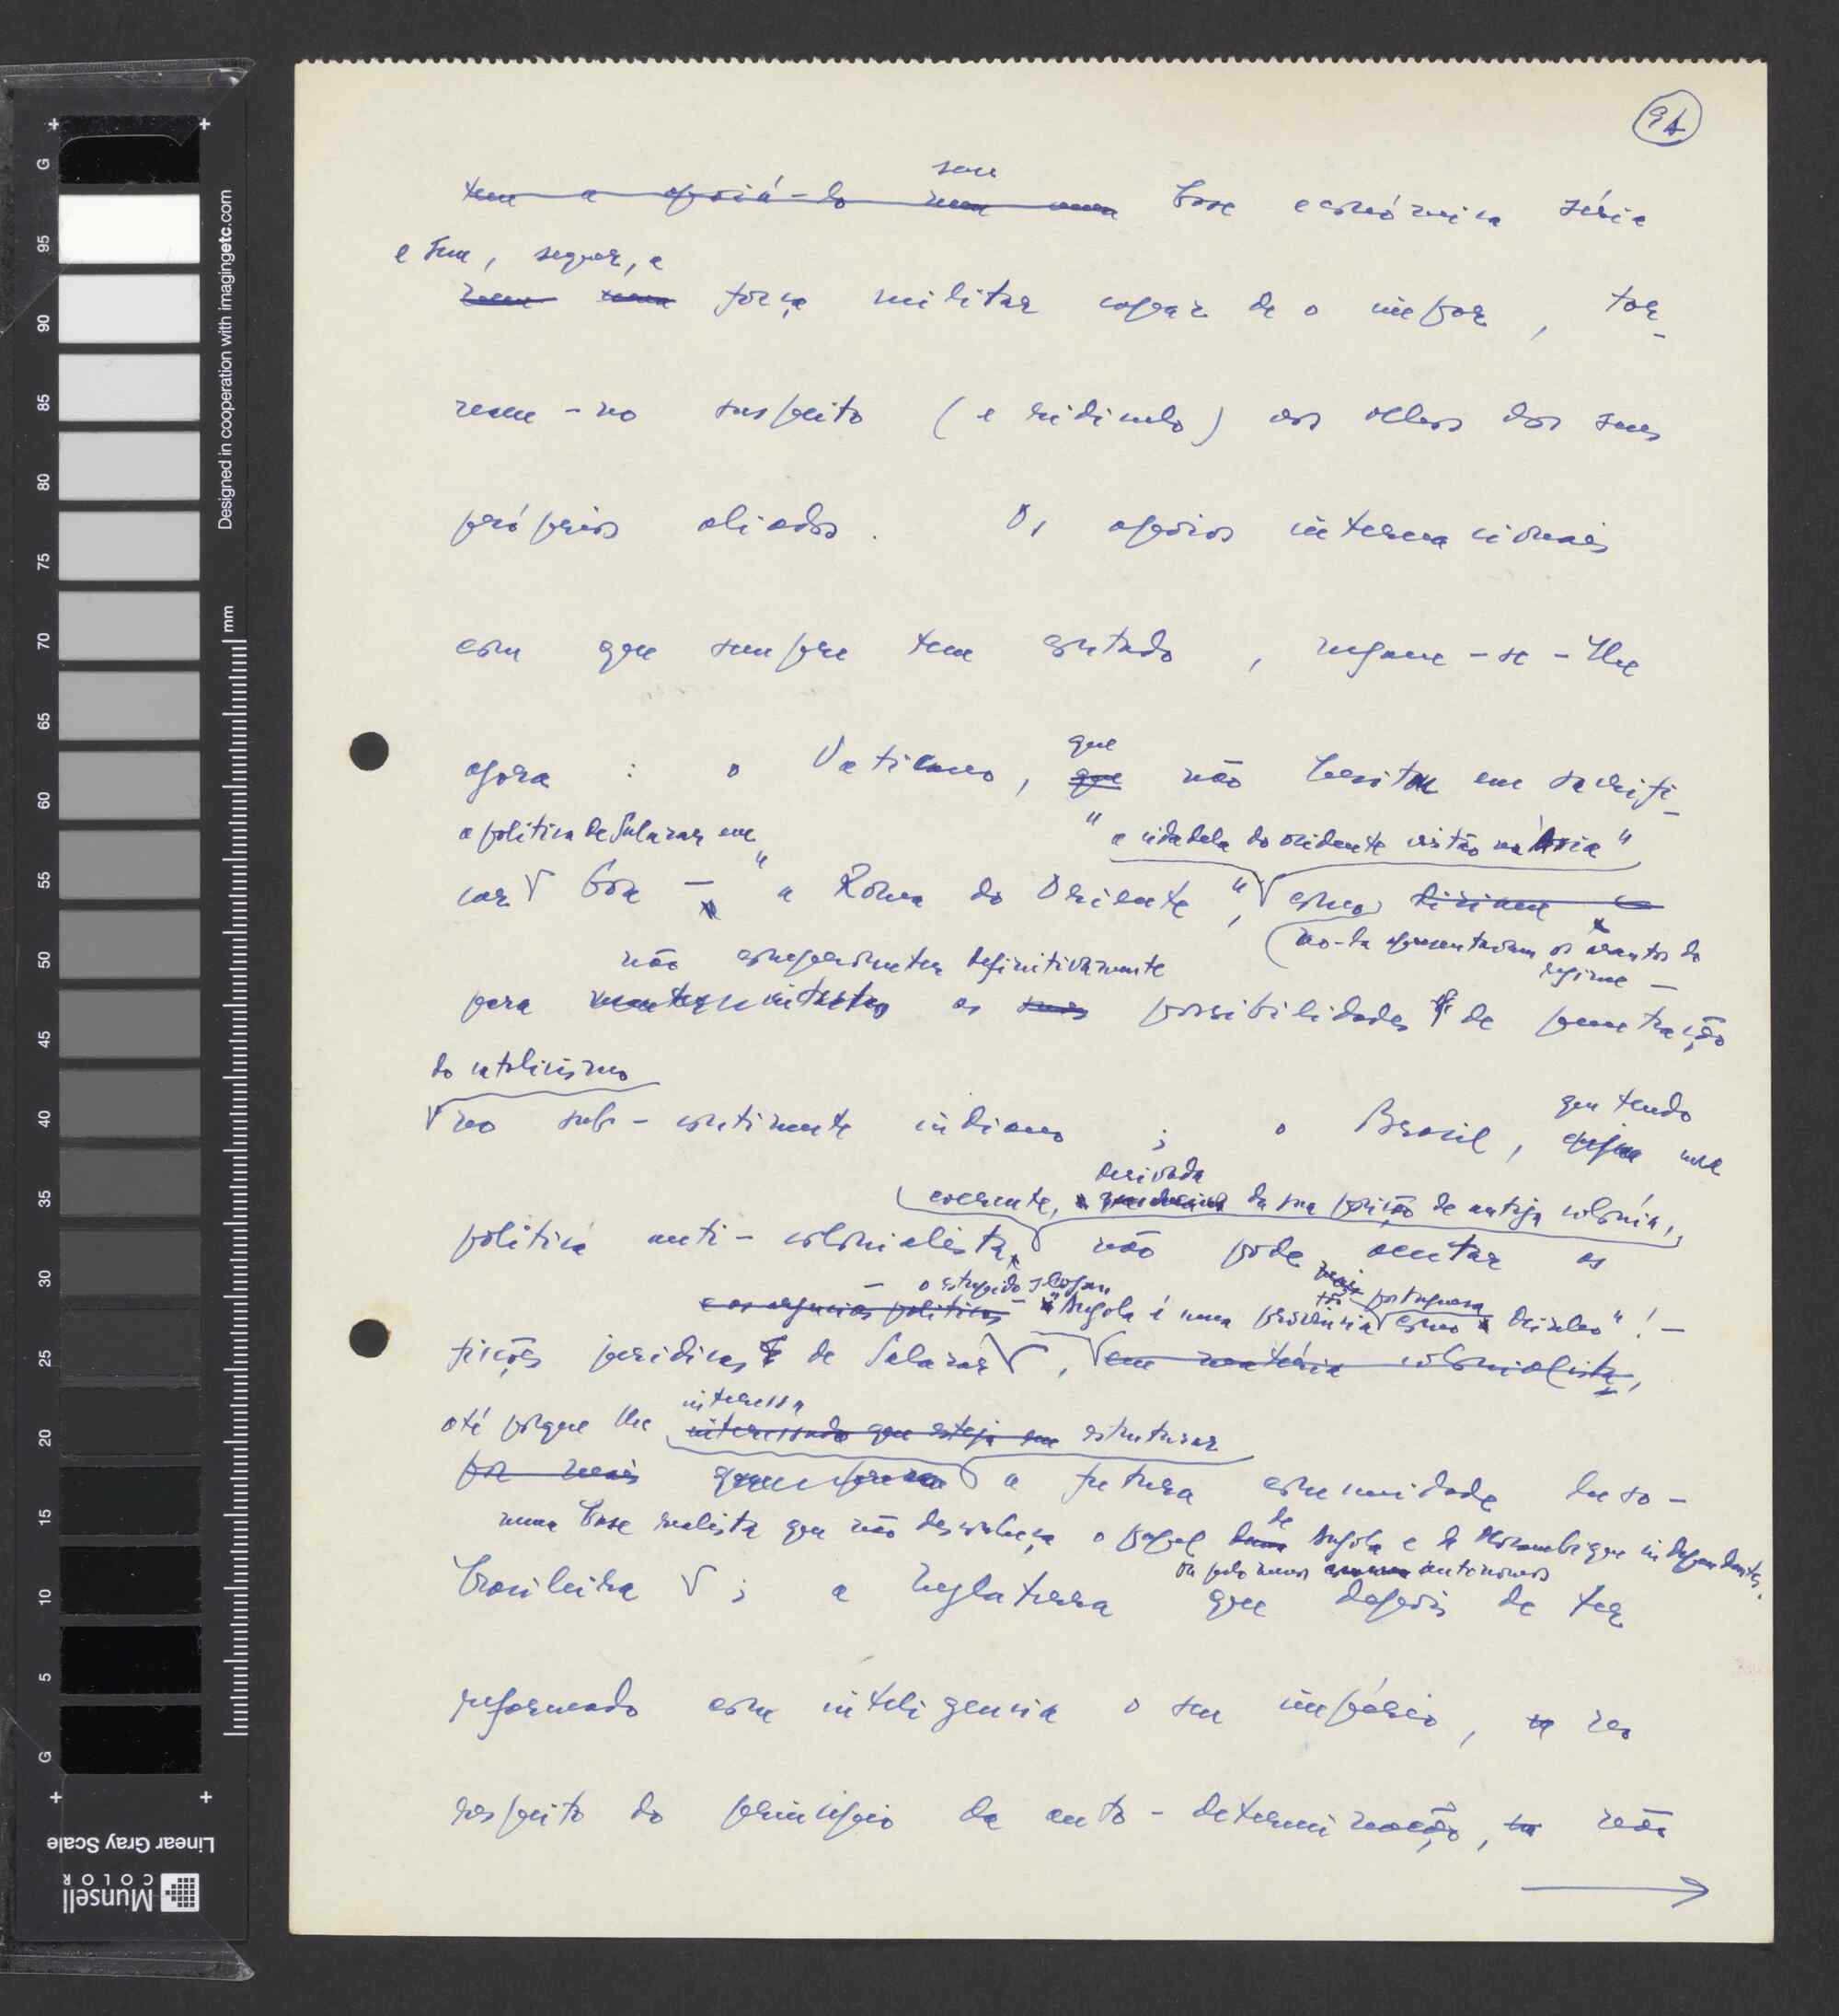 9A
sem
tem a apoiá-lo nem uma base económica séria
e sem, sequer, a
nem uma força militar capaz de o impor, tor-
nam-no suspeito (e ridículo) aos olhos dos seus
próprios aliados. Os apoios internacionais
com que sempre tem contado, negam-se-lhe
que
agora : o Vaticano, que não hesita em sacrifi-
a política de Salazar em "a cidadela do ocidente cristão na Ásia"
car Goa — "a Roma do Oriente", como diziam
no-la apresentavam os arautos do
regime —
não comprometer definitivamente
para manter intactas as suas possibilidades de penetração
do catolicismo
no sub-continente indiano ; o Brasil, que tendo uma
derivada
coerente, da sua posição de antiga colónia,
política anti-colonialista, não pode aceitar as
— o estupido slogan mais
e os argucias politicas — "Angola é uma província tão portuguesa como o Minho" ! —
ficções juridicas de Salazar, em matéria colonialista,
interessa
até porque lhe interessado que esteja em estruturar
por mais a futura comunidade luso-
numa base realista que não desconheça o papel de Angola e de Moçambique independentes,
ou pelo menos autónomos
brasileira ; a Inglaterra que depois de ter
reformado com inteligencia o seu império, no
respeito do principio da auto-determinação, não
G
95
90
85
80
75
70
65
60
55
50
45
40
35
30
25
20
15
10
5
G
mm
Designed in cooperation with imagingetc.com
Linear Gray Scale
Munsell
COLOR